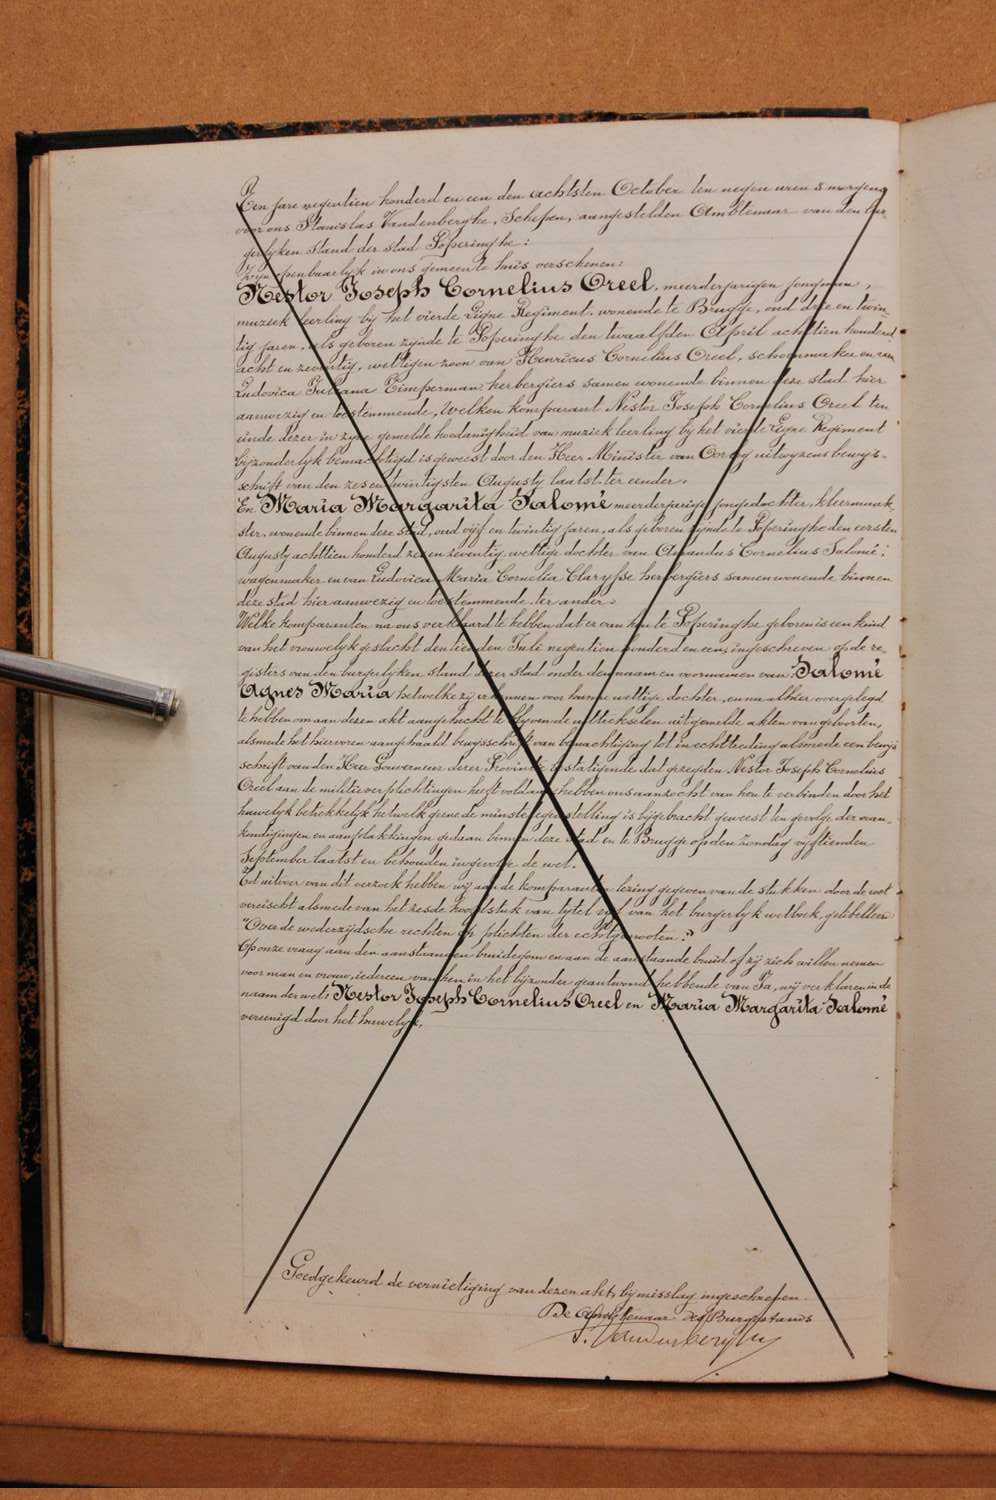 Ten jare negentien honderd en een den achtsten October ten negen uren s morgens
voor ons Stanislas Vandenberghe, Schepen, aangestelden Ambtenaar van den bur-
gerlyken Stand der stad Poperinghe:
Zyn openbaarlyk in ons gemeente huis verschenen:
Nestor Joseph Cornelius Creel, meerderjarigen jongman,
muziek leerling by het vierde Ligne Regiment, wonende te Brugge, oud drie en twin-
tig jaren, als geboren zynde te Poperinghe den twaalfden April achttien honderd
acht en zeventig, wettigen zoon van Henricus Cornelius Creel, schoenmaker en van
Ludovica Juliana Timperman, herbergiers samen wonende binnen deze stad hier
aanwezig en toestemmende, Welken komparant Nestor Joseph Cornelius Creel ten
einde dezer in zyne gemelde hoedanigheid van muziek leerling by het vierde Ligne Regiment
byzonderlyk bemachtigd is geweest door den Heer Minister van Oorlog uitwyzens bewys-
schrift van den zesentwintigsten Augusty laatst. ter eender.
En Maria Margarita Salomé meerderjarige jongedochter, kleermaak-
ster, wonende binnen deze stad, oud vyf en twintig jaren, als geboren zynde te Poperinghe den eersten
Augusty achttien honderd zes en zeventig, wettige dochter van Amandus Cornelius Salomé,
wagenmaker en van Ludovica Maria Cornelia Clarysse herbergiers samenwonende binnen
deze stad hier aanwezig en toestemmende. ter ander.
Welke komparanten na ons verklaard te hebben dat er van hen te Poperinghe geboren is een kind
van het vrouwelyk geslacht den tienden Juli negentien honderd en een, ingeschreven op de re-
gisters van den burgerlyken stand dezer stad onder den naam en voornamen van Salomé
Agnes Maria hetwelke zy erkennen voor hunne wettige dochter, en nu alhier overgelegd
te hebben om aan dezen akt aangehecht te blyven de uittrekselen uitgemelde akten van geboorten,
alsmede het hiervoren aangehaald bewysschrift van bemachtiging tot in echttreding alsmede een bewys
schrift van den Heer Gouverneur dezer Provintie bestatigende dat gezegden Nestor Joseph Cornelius
Creel aan de militie verplichtingen heeft voldaan, hebben ons aanzocht van hen te verbinden door het
huwelyk betrekkelyk hetwelk geene de minste tegenstelling is bygebracht geweest ten gevolge der veran-
kondigingen en aanplakkingen gedaan binnen deze stad en te Brugge op den Zondag vyftienden
September laatst en behouden ingevolge de wet.
Tot uitvoer van dit verzoek hebben wy aan de komparanten lezing gegeven van de stukken door de wet
vereischt alsmede van het zesde hoofdstuk van tytel vyf van het burgerlyk wetboek, getitteld:
"Over de wederzydsche rechten en plichten der echtgenooten."
Op onze vraag aan den aanstaanden bruidegom en aan de aanstaande bruid of zy zich willen nemen
voor man en vrouw, iedereen van hen in het byzonder geantwoord hebbende van Ja, wy verklaren in de
naam der wet Nestor Joseph Cornelius Creel en Maria Margarita Salomé
vereenigd door het huwelyk.
Goedgekeurd de vernietiging van dezen akt, by misslag ingeschreven.
De Ambtenaar des Burgerstands
S. Vandenberghe